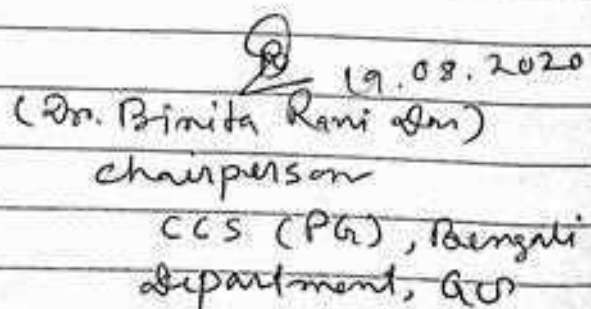 19.08.2020
(Dr. Binita Rani Das)
Chairperson
CCS (PG), Bengali
Department, GU